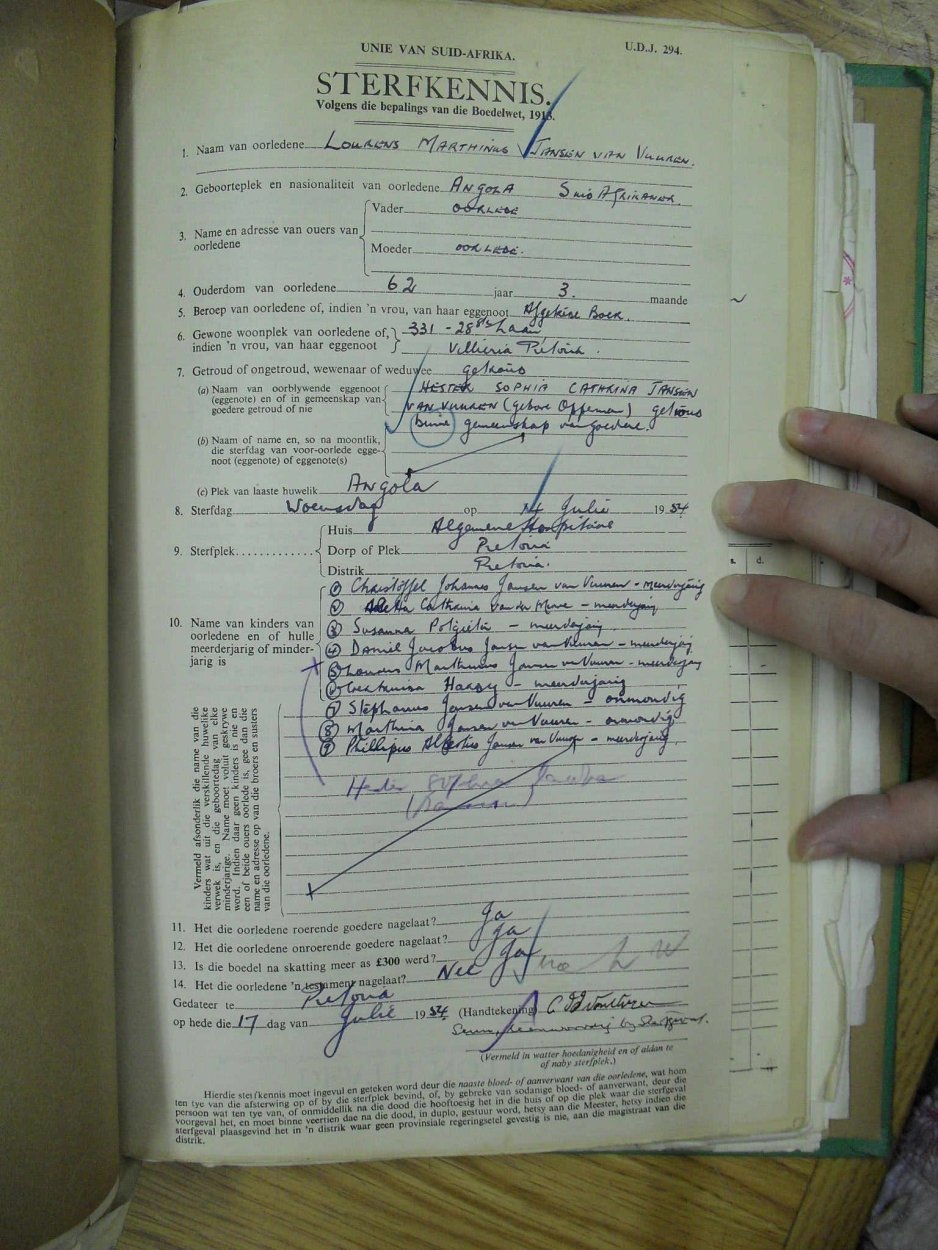 UNIE VAN SUID-AFRIKA.
U.D.J. 294.
STERFKENNIS.
Volgens die bepalings van die Boedelwet, 1913.
1. Naam van oorledene LOURENS MARTHINUS JANSEN VAN VUUREN.
2. Geboorteplek en nasionaliteit van oorledene ANGOLA SUID AFRIKANER.
3. Name en adresse van ouers van oorledene
Vader OORLEDE
Moeder OORLEDE.
4. Ouderdom van oorledene 62 jaar 3. maande
5. Beroep van oorledene of, indien 'n vrou, van haar eggenoot Afgetrede Boer.
6. Gewone woonplek van oorledene of, 331 - 28ste Laan
indien 'n vrou, van haar eggenoot Villieria Pretoria.
7. Getroud of ongetroud, wewenaar of weduwee getroud
(a) Naam van oorblywende eggenoot HESTER SOPHIA CATHRINA JANSEN
(eggenote) en of in gemeenskap van VAN VUUREN (gebore Opperman) getroud
goedere getroud of nie binne gemeenskap van goedere.
(b) Naam of name en, so na moontlik,
die sterfdag van voor-oorlede egge-
noot (eggenote) of eggenote(s)
(c) Plek van laaste huwelik ANGOLA
8. Sterfdag Woensdag op 14 Julie 1954
9. Sterfplek
Huis Algemene Hospitaal
Dorp of Plek Pretoria
Distrik Pretoria.
10. Name van kinders van
oorledene en of hulle
meerderjarig of minder-
jarig is
(1) Christoffel Johannes Jansen van Vuuren - meerderjarig
(2) Aletta Catharina van der Merwe - meerderjarig
(3) Susanna Potgieter - meerderjarig
(4) Daniel Jacobus Jansen van Vuuren - meerderjarig
(5) Lourens Marthinus Jansen van Vuuren - meerderjarig
(6) Hardy - meerderjarig
(7) Stephanus Jansen van Vuuren - onmondig
(8) Marthina Jansen van Vuuren - onmondig
(9) Phillipus Albertus Jansen van Vuuren - meerderjarig.
Hester Sophia
Vermeld afsonderlik die name van die
kinders wat uit die verskillende huwelike
verwek is, en die geboortedag van elke
minderjarige. Name moet voluit geskrywe
word. Indien daar geen kinders is nie en
een of beide ouers oorlede is, gee dan die
name en adresse op van die broers en susters
van die oorledene.
11. Het die oorledene roerende goedere nagelaat? Ja
12. Het die oorledene onroerende goedere nagelaat? Ja
13. Is die boedel na skatting meer as £300 werd? Ja
14. Het die oorledene 'n testament nagelaat? Nee
Gedateer te Pretoria
op hede die 17 dag van Julie 1954 (Handtekening)
Seun, teenwoordig by Sterfgeval.
(Vermeld in watter hoedanigheid en of aldan te
of naby sterfplek.)
Hierdie sterfkennis moet ingevul en geteken word deur die naaste bloed- of aanverwant van die oorledene, wat hom
ten tye van die afsterwing op of by die sterfplek bevind, of, by gebreke van sodanige bloed- of aanverwant, deur die
persoon wat ten tye van, of onmiddellik na die dood die hooftoesig het in die huis of op die plek waar die sterfgeval
voorgeval het, en moet binne veertien dae na die dood, in duplo, gestuur word, hetsy aan die Meester, hetsy indien die
sterfgeval plaasgevind het in 'n distrik waar geen provinsiale regeringsetel gevestig is nie, aan die magistraat van die
distrik.
s. d.